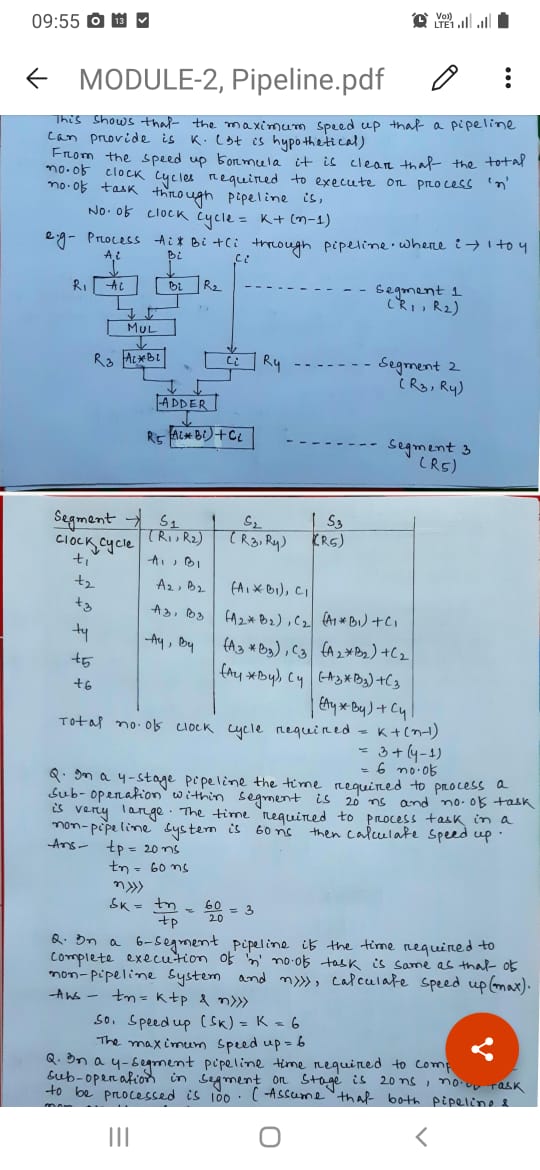 09:55
13
Vo))
LTE1
MODULE-2, Pipeline.pdf
This shows that the maximum speed up that a pipeline
can provide is K. (It is hypothetical)
From the speed up formula it is clear that the total
no. of clock cycles required to execute or process 'n'
no. of task through pipeline is,
No. of clock cycle = K + (n-1)
e.g- Process Ai * Bi + Ci through pipeline. where i → 1 to 4
Ai Bi Ci
R1 Ai Bi R2 Segment 1
(R1, R2)
MUL
R3 Ai*Bi Ci R4 Segment 2
(R3, R4)
ADDER
R5 (Ai*Bi)+Ci Segment 3
(R5)
Segment → S1 S2 S3
Clock cycle (R1, R2) (R3, R4) (R5)
t1 A1, B1
t2 A2, B2 (A1*B1), C1
t3 A3, B3 (A2*B2), C2 (A1*B1)+C1
t4 A4, B4 (A3*B3), C3 (A2*B2)+C2
t5 (A4*B4), C4 (A3*B3)+C3
t6 (A4*B4)+C4
Total no. of clock cycle required = K+(n-1)
= 3+(4-1)
= 6 no. of
Q. In a 4-stage pipeline the time required to process a
sub-operation within segment is 20 ns and no. of task
is very large. The time required to process task in a
non-pipeline system is 60 ns then calculate speed up.
Ans- tp = 20 ns
tn = 60 ns
n>>>
SK = tn/tp = 60/20 = 3
Q. In a 6-segment pipeline if the time required to
complete execution of 'n' no. of task is same as that of
non-pipeline system and n>>>, calculate speed up(max).
Ans - tn = Ktp & n>>>
So, Speed up (SK) = K = 6
The maximum speed up = 6
Q. In a 4-segment pipeline time required to comp
sub-operation in segment or stage is 20 ns, no. of task
to be processed is 100. (Assume that both pipeline &